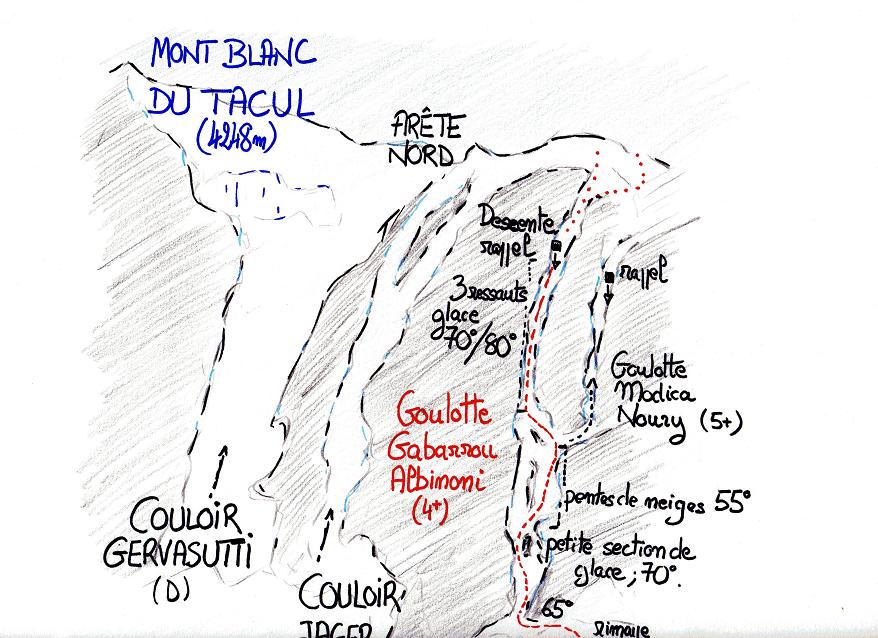 MONT BLANC
DU TACUL
(4248m)
ARÊTE
NORD
Descente
rappel
rappel
3 ressauts
glace
70°/80°
Goulotte
Modica
Noury (5+)
Goulotte
Gabarrou
Albinoni
(4+)
pentes de neiges 55°
COULOIR
GERVASUTTI
(D)
petite section de
glace ; 70°.
COULOIR
JAGER
65°
rimaye